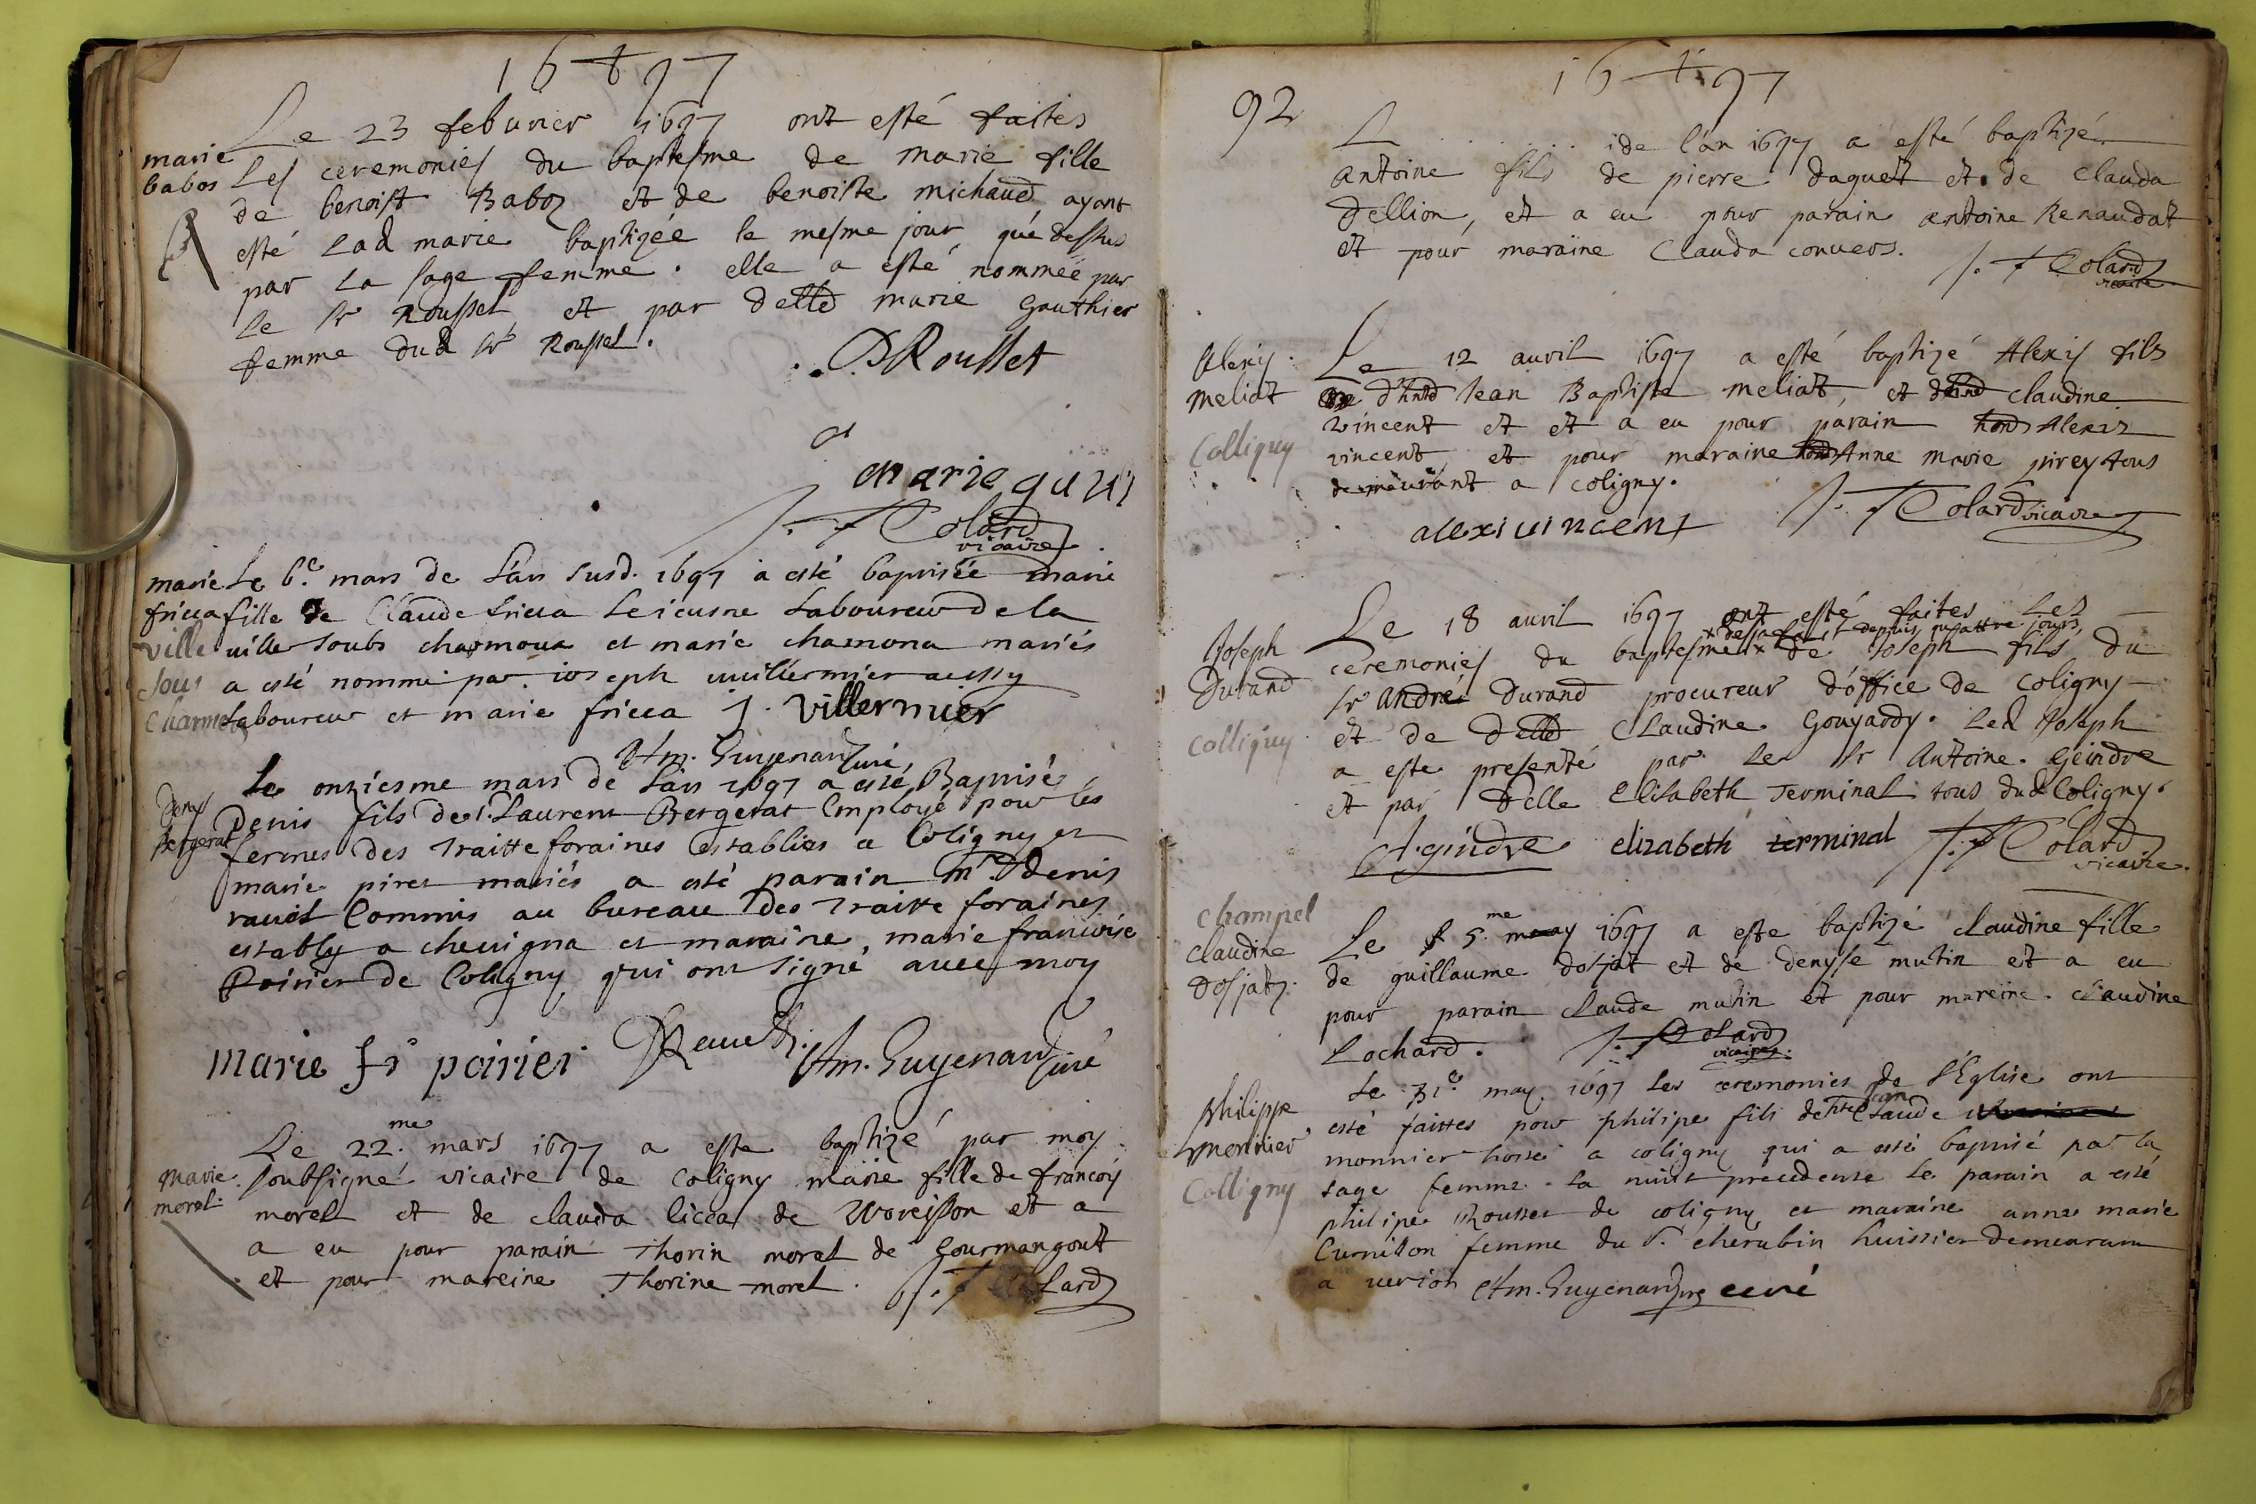 1697
Le 23 feburier 1697 ont esté faites
marie
babos
Les ceremonies du baptesme de marie fille
de benoist Baboz et de benoiste michaud ayant
esté Lad marie baptizée le mesme jour que dessus
par La sage femme. elle a esté nommée par
Le sr Rousset et par delle marie Gauthier
femme dud sr Rousset.
Rousset
marie
J. F Colard
vicaire
marie
fricca
ville
sous
Charmoux
Le 6e mars de L'an susd. 1697 a esté baptisée marie
fille de Claude fricca Le ieusne Laboureur de la
ville soubs charmoux et marie chamona mariés
a esté nommé par ioseph vuillermier aussy
Laboureur et marie fricca J. villermier
Am. Guyenard curé
Deny
Bergerat
Le onziesme mars de L'an 1697 a esté Baptisé
Denis fils de s. Laurent Bergerat Employé pour les
fermes des Traitte foraines establies a Coligny et
marie piret mariés a esté parain Mr Denis
ravet Commis au bureau des Traitte foraines
estably a chevigna et maraine, marie francoise
Poirier de Coligny qui ont signé avec moy
marie fr poirier
Am. Guyenard curé
marie
morel
Le 22.me mars 1697 a este baptizé par moy
soubsigné vicaire de Coligny marie fille de francois
morel et de clauda licca de Voreisson et a
a eu pour parain Thorin morel de Gourmangout
et pour mareine Thorine morel.
J. F Colard
92
1697
L . . . . . . . de l'an 1697 a esté baptizé
Antoine fils de pierre daguet et de Clauda
Dellion, et a eu pour parain antoine Renaudat
et pour maraine Clauda convers.
J. F Colard
vicaire
Alexis
meliat
Colligny
Le 12 auril 1697 a esté baptizé Alexis fils
d'hnd Jean Baptiste meliat, et d'hnd claudine
vincent et et a eu pour parain hond Alexis
vincent, et pour maraine hond Anne marie pirey tous
demeurant a Coligny.
alexi vincent
J. F Colard vicaire
Joseph
Durand
Colligny
Le 18 auril 1697 ont esté faites Les
ceremonies du baptesme x de Joseph fils du
x depuis quattre jours,
sr André Durand procureur d'office de Coligny
et de delle Claudine Gouyardy. Led Joseph
a este presenté par Le sr Antoine Geindre
et par Delle Elisabeth Terminal tous dud Coligny.
A. gindre elizabeth terminal J. F Colard
vicaire.
champel
claudine
Dosjat
Le 5.me may 1697 a este baptizé claudine fille
de guillaume dosjat et de denysse mutin et a eu
pour parain Claude mutin et pour mareine Claudine
Lochard. J. F Colard
vicaire
philippe
monnier
Colligny
Le 31e may 1697 Les ceremonies de l'Eglise ont
esté faittes pour philipe fils de Claude
monnier hoste a coligny qui a esté baptisé par la
sage femme la nuit precedente le parain a esté
philipe Rousset de coligny et maraine anne marie
Curnillon femme du S. cherubin huissier demeurant
a verion Am. Guyenard curé